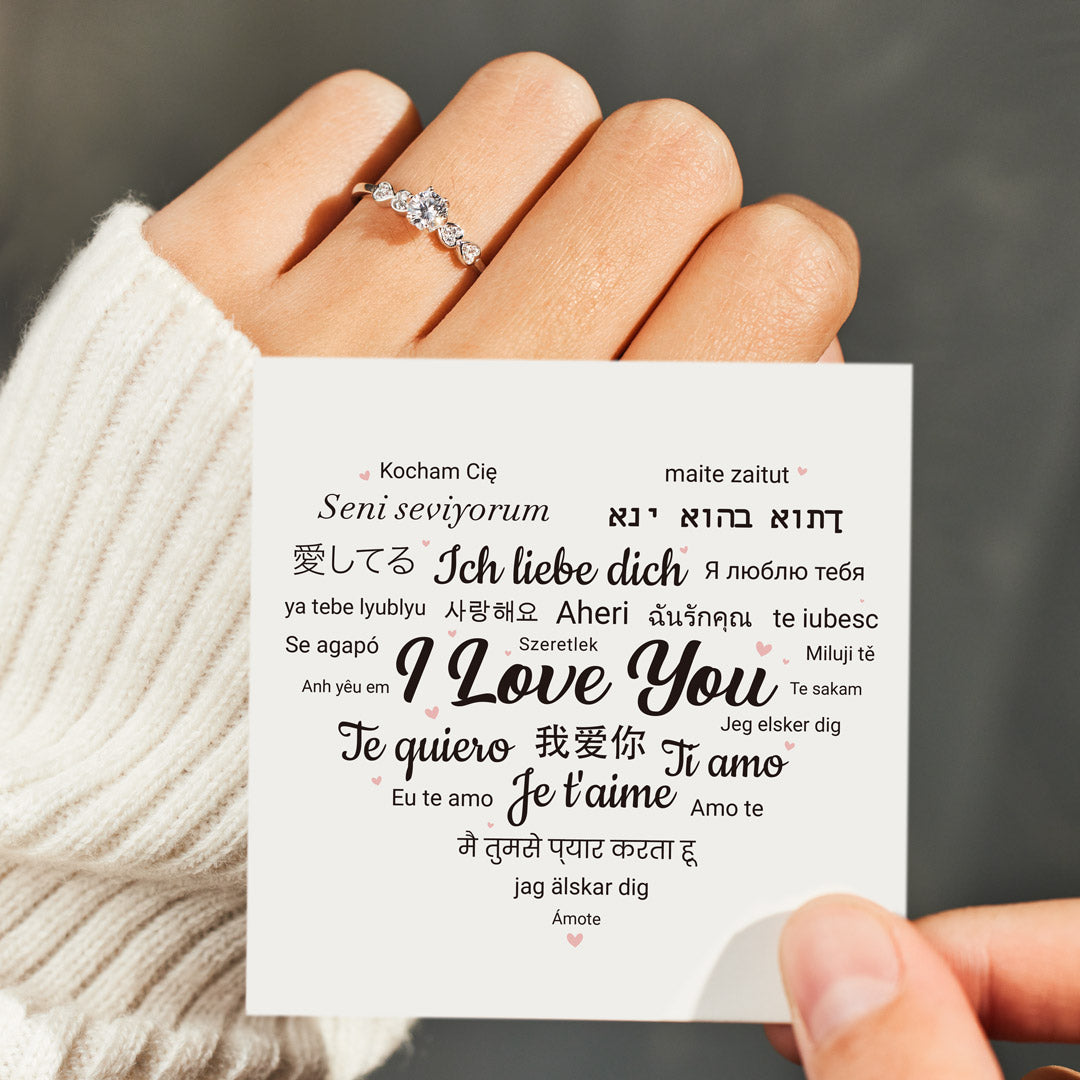 Kocham Cię
maite zaitut
Seni seviyorum
אני אוהב אותך
愛してる Ich liebe dich Я люблю тебя
ya tebe lyublyu 사랑해요 Aheri ฉันรักคุณ te iubesc
Se agapó
Szeretlek
Miluji tě
Anh yêu em
I Love You
Te sakam
Jeg elsker dig
Te quiero 我爱你 Ti amo
Eu te amo Je t'aime Amo te
मै तुमसे प्‌यार करता हू
jag älskar dig
Ámote